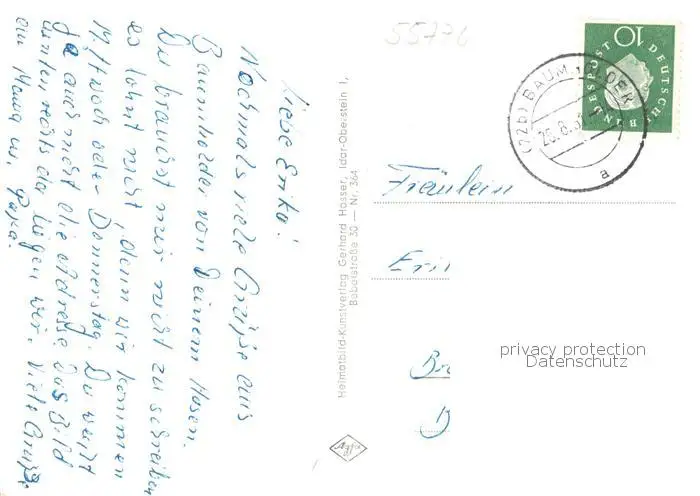 55776
Liebe Erika!
Nochmals viele Grüße aus
Baumholder von Deinem Hasen.
Du brauchst mir nicht zu schreiben
es lohnt nicht, denn wir kommen
Mittwoch oder Donnerstag. Du weißt
ja auch nicht die Adresse. Das Bild
unten rechts da liegen wir. Viele Grüße
an Mama u. Papa.
Heimatbild-Kunstverlag Gerhard Hosser, Idar-Oberstein 1,
Babelstraße 30 — Nr. 364
Agfa
10
DEUTSCHE BUNDESPOST
(22b) BAUMHOLDER
26.8.
a
Fräulein
Eri
Br
privacy protection
Datenschutz